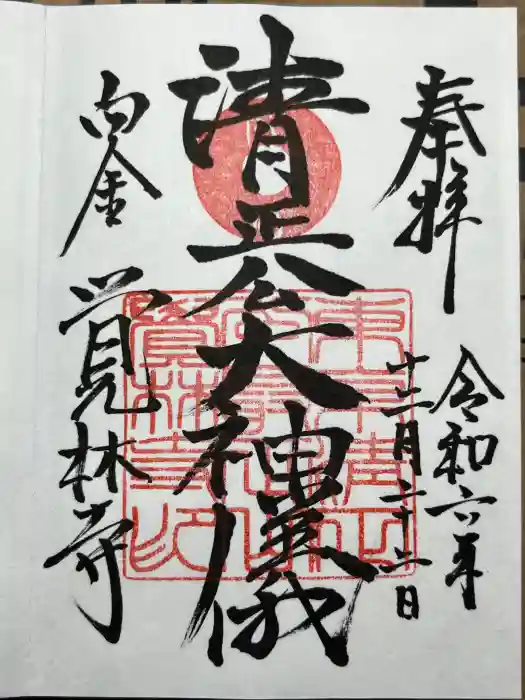 奉拝
令和六年
十二月二十二日
清正公大神儀
白金
覚林寺